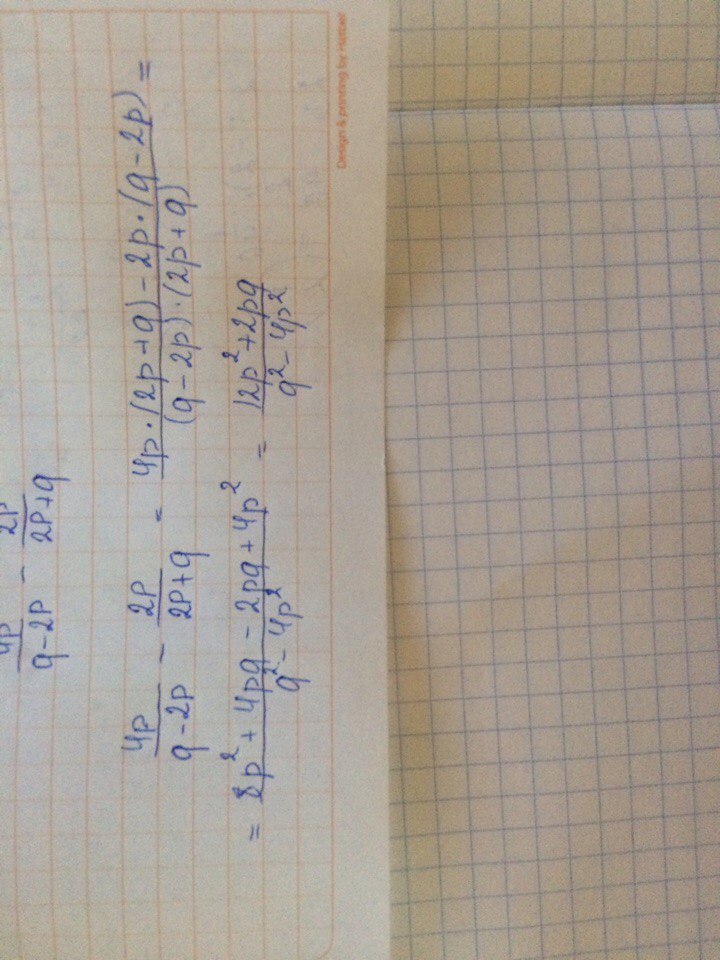 4p/(q-2p) - 2p/(2p+q)
4p/(q-2p) - 2p/(2p+q) = (4p·(2p+q)-2p·(q-2p))/((q-2p)·(2p+q)) =
= (8p²+4pq-2pq+4p²)/(q²-4p²) = (12p²+2pq)/(q²-4p²)
Design & printing by Hatber